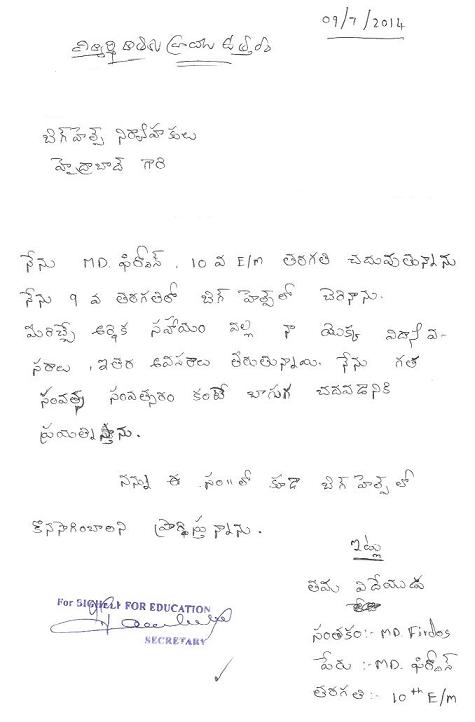 09/7/2014
విద్యార్థి రాసిన ఉత్తరం
బిగ్‌హెల్ప్ నిర్వాహకులు
హైద్రాబాద్ గారి
నేను MD. ఫిర్దోస్, 10 వ E/M తరగతి చదువుతున్నాను
నేను 9 వ తరగతిలో బిగ్ హెల్ప్‌లో చేరినాను.
మీరిచ్చే ఆర్థిక సహాయం వల్ల నా యొక్క విద్యావ-
సరాలు, ఇతర అవసరాలు తీరుతున్నాయి. నేను గత
సంవత్సరం కంటే బాగుగ చదవడానికి
ప్రయత్నిస్తాను.
నన్ను ఈ సం॥లో కూడా బిగ్ హెల్ప్ లో
కొనసాగించాలని ప్రార్థిస్తున్నాను.
ఇట్లు
తమ విదేయుడు
సంతకం:- MD. Firdos
పేరు:- MD. ఫిర్దోస్
తరగతి:- 10th E/M
For BIGHELP FOR EDUCATION
SECRETARY